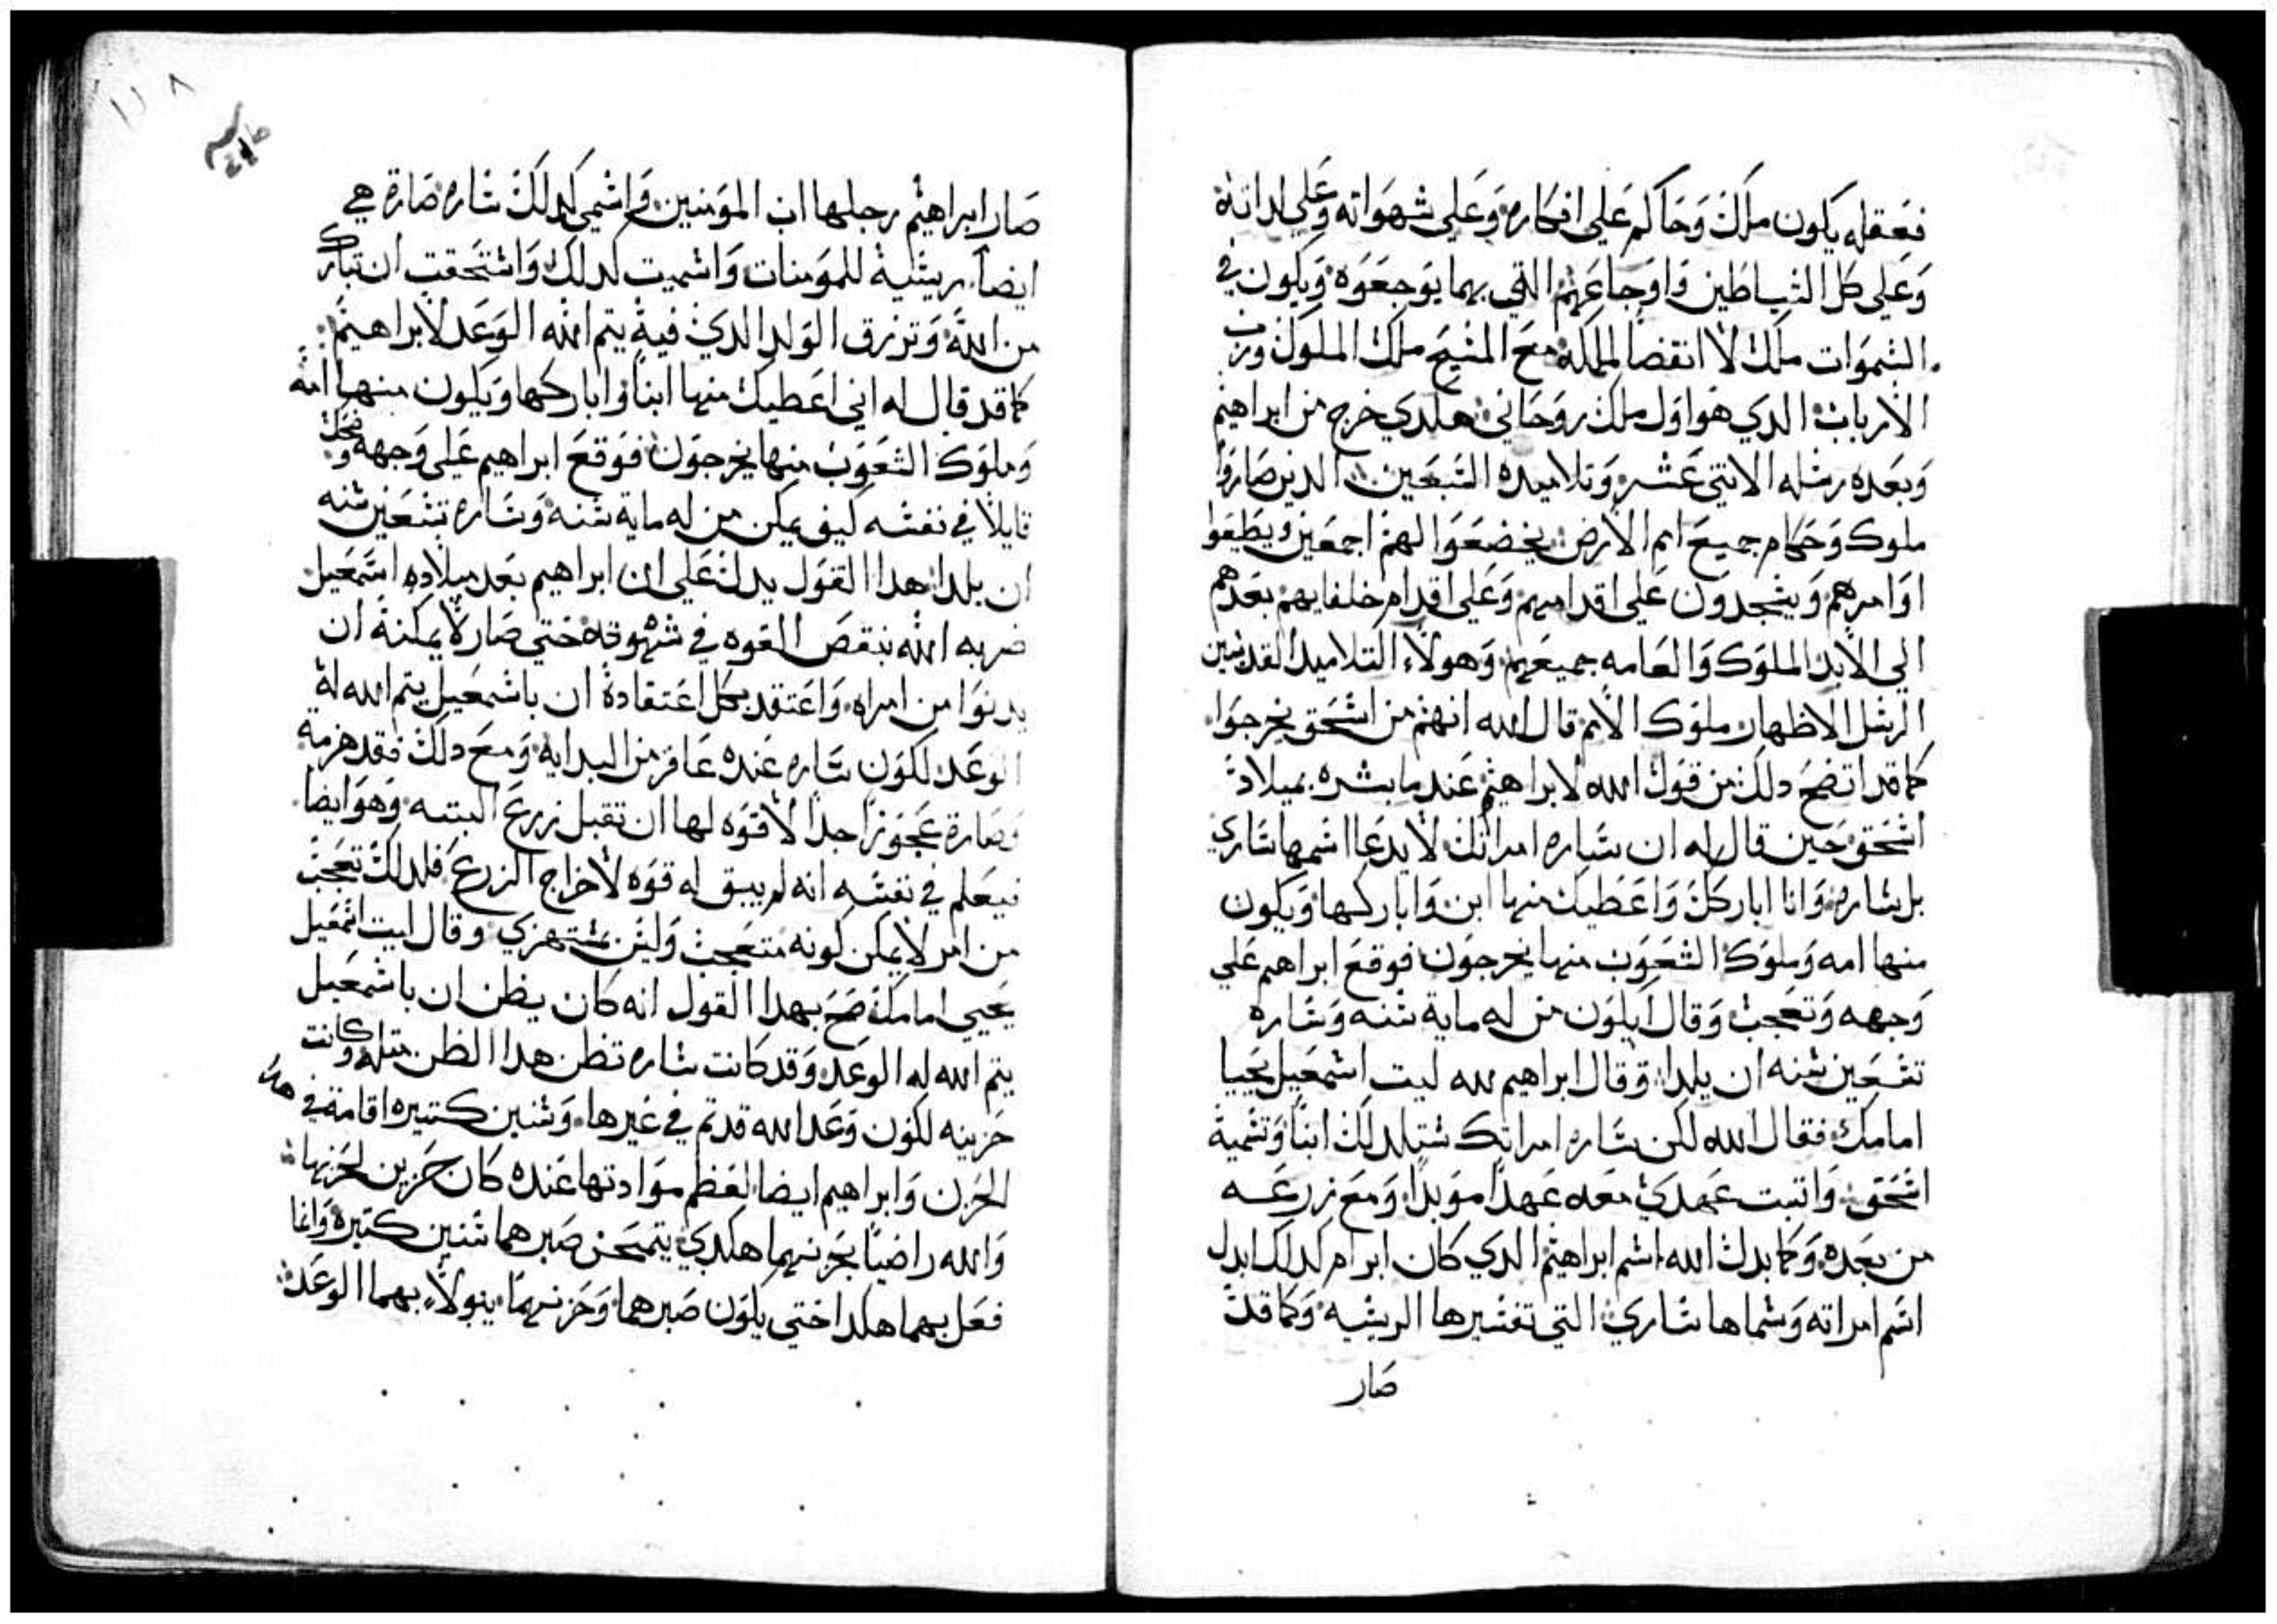 فعقله يكون ملك وحاكم علي افكاره وعلي شهواته وعلي لداته
وعلي كل الشياطين واوجاعهم التي بهما يوجعوه ويكون في
السموات ملك لا انقضا لملكه مع المسيح ملك الملوك ورب
الارباب الدي هو اول ملك روحاني هكدي خرج من ابراهيم
وبعده رسله الاتني عشر وتلاميده السبعين الدين صاروا
ملوك وحكام جميع امم الارض يخضعوا لهم اجمعين ويطيعوا
اوامرهم ويسجدون علي اقدامهم وعلي اقدام خلفايهم بعدهم
الي الابد الملوك والعامه جميعهم وهولاء التلاميد القديسين
الرسل الاطهار ملوك الامم قال الله انهم من اسحق يخرجوا
كما قد اتضح دلك من قول الله لابراهيم عند ما بشره بميلاد
اسحق حين قال له ان ساره امراتك لا يدعا اسمها ساري
بل ساره وانا اباركك واعطيك منها ابن واباركها ويكون
منها امه وملوك الشعوب منها يخرجون فوقع ابراهيم علي
وجهه وتعجب وقال ايكون من له ماية سنه وساره
تسعين سنه ان يلدا وقال ابراهيم لله ليت اسمعيل يحيا
امامك فقال الله لكن ساره امراتك ستلد لك ابنا وتسميه
اسحق واتبت عهدي معه عهدا موبدا ومع زرعه
من بعده وكما بدل الله اسم ابراهيم الدي كان ابرام كدلك ابدل
اسم امراته وسماها ساري التي تفسيرها الريسه وكما قد
صار
١١٨
صار ابراهيم رجلها اب المومنين واسمي كدلك ساره صارة هي
ايضا ريسية للمومنات واسميت كدلك واستحقت ان تبارك
من الله وترزق الولد الدي فيه يتم الله الوعد لابراهيم
كما قد قال له اني اعطيك منها ابنا واباركها ويكون منها امه
وملوك الشعوب منها يخرجون فوقع ابراهيم علي وجهه وضحك
قايلا في نفسه كيف يمكن من له ماية سنه وساره تسعين سنه
ان يلدا هدا القول يدل علي ان ابراهيم بعد ميلاده اسمعيل
ضربه الله بنقص القوه في شهوته حتي صار لا يمكنه ان
يدنوا من امراه واعتقد بكل اعتقاده ان باسمعيل يتم الله له
الوعد لكون ساره عنده عاقر من البدايه ومع دلك فقد هرمه
وصارة عجوزا جدا لا قوه لها ان تقبل زرع البته وهو ايضا
فيعلم في نفسه انه لم يبق له قوه لاخراج الزرع فلدلك تعجب
من امر لا يمكن كونه متعجب وليس مستهزي وقال ليت اسمعيل
يحيي امامك صح بهدا القول انه كان يظن ان باسمعيل
يتم الله له الوعد وقد كانت ساره تظن هدا الظن متله وكانت
حزينه لكون وعد الله قد تم في غيرها وسنين كتيره اقامة في هدا
الحزن وابراهيم ايضا لعظم موادتها عنده كان حزين لحزنها
والله راضيا بحزنهما هكدي يتمحن صبرهما سنين كتيره وانما
فعل بهما هكدا حتي يكون صبرهما وحزنهما ينولا بهما الوعد